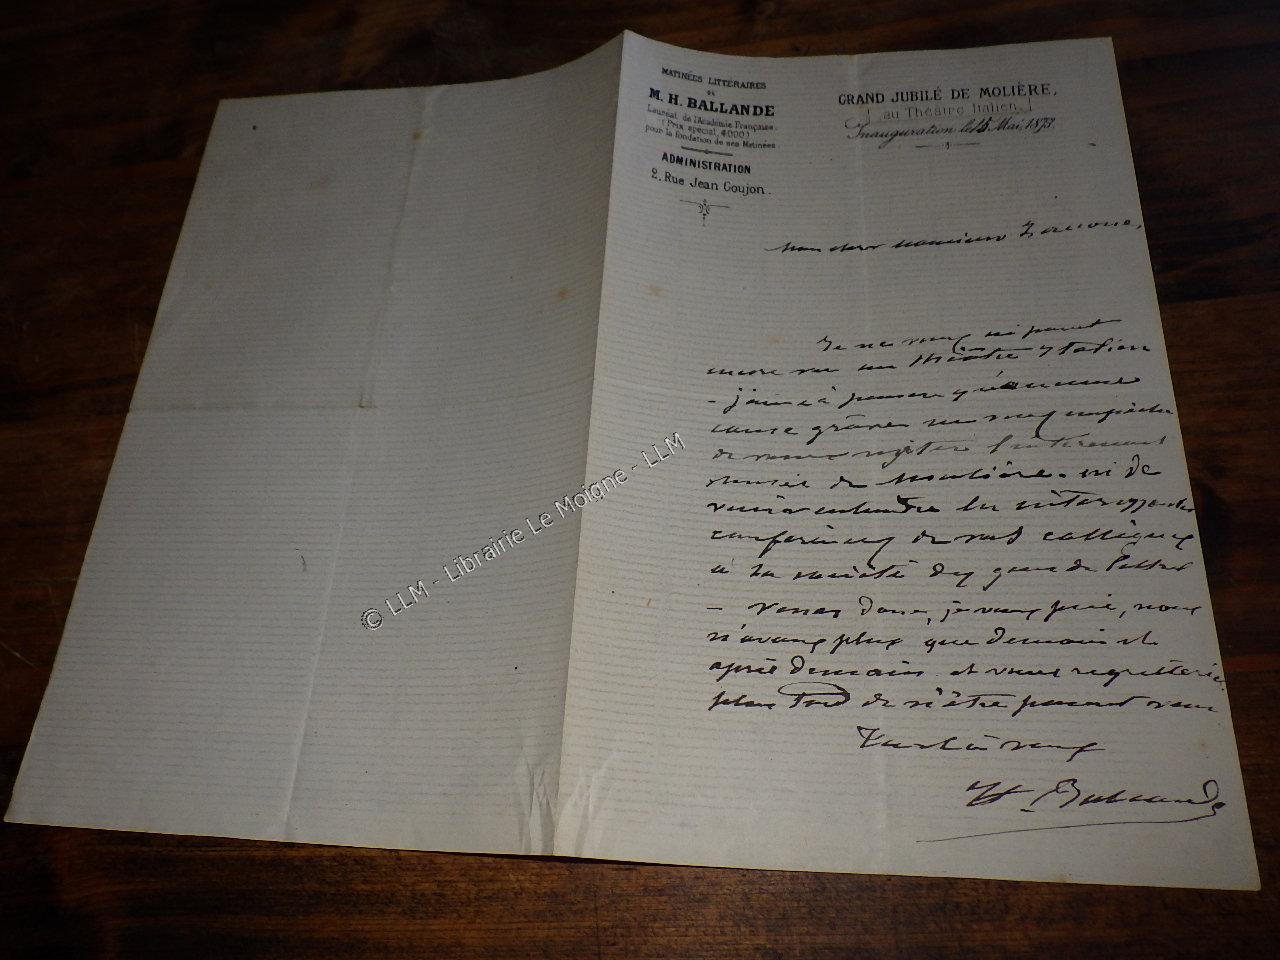 MATINÉES LITTÉRAIRES
DE
M. H. BALLANDE
Lauréat de l'Académie Française.
(Prix spécial, 4000f)
pour la fondation de ses Matinées
ADMINISTRATION
2. Rue Jean Goujon.
GRAND JUBILÉ DE MOLIÈRE,
au Théâtre Italien.
Inauguration le 15 Mai, 1873.
Mon cher monsieur
Je ne vous ai point
encore vu au théâtre Italien
- j'aime à penser qu'aucune
cause grave ne vous empêche
de venir visiter l'intéressant
musée de Molière. ni de
venir entendre les intéressantes
conférences de vos collègues
à la société des gens de lettres
- Venez donc, je vous prie, nous
n'avons plus que demain et
après demain et vous regretteriez
plus tard de n'être point venu
Tout à vous
H. Ballande
© LLM - Librairie Le Moigne - LLM